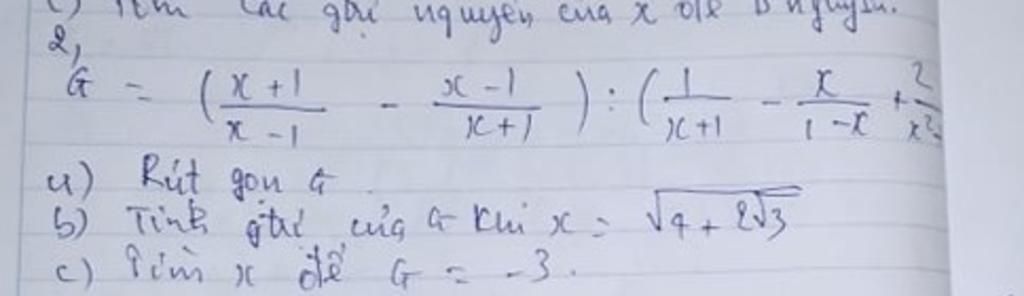 c) Tìm các gtrị nguyên của x để B nguyên.
2,
G = (\frac{x+1}{x-1} - \frac{x-1}{x+1}) : (\frac{1}{x+1} - \frac{x}{1-x} + \frac{2}{x^2-
a) Rút gọn G.
b) Tính gtrị của G khi x = \sqrt{4+2\sqrt{3}}
c) Tìm x để G = -3.